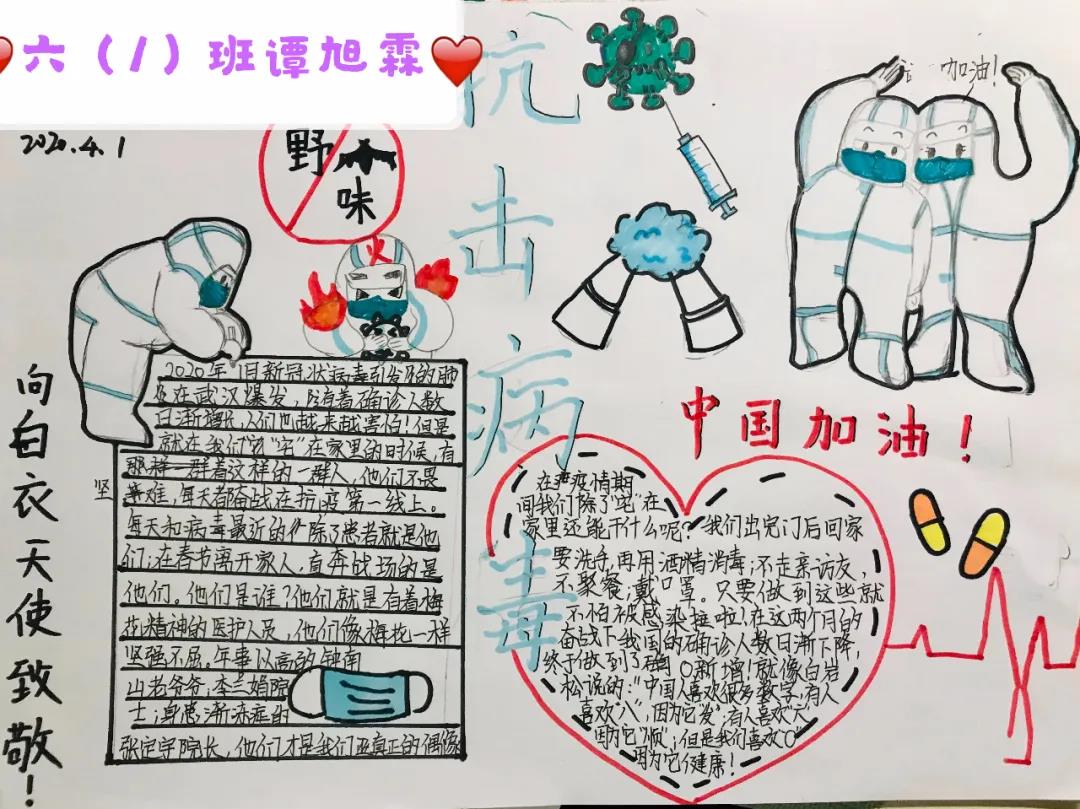 六（1）班谭旭霖
2020.4.1
野
味
火
抗击病毒
加油！
向白衣天使致敬！
中国加油！
2020年1月新冠状病毒引发的肺
炎在武汉爆发，随着确诊人数
日渐增长，人们也越来越害怕！但是
就在我们“宅”在家里的时候，有
那样一群着这样的一群人，他们不畏
坚
难，每天都奋战在抗疫第一线上。
每天和病毒最近的除了患者就是他
们；在春节离开家人，直奔战场的是
他们。他们是谁？他们就是有着梅
花精神的医护人员，他们像梅花一样
坚强不屈。年事以高的钟南
山老爷爷；李兰娟院
士；身患渐冻症的
张定宇院长，他们才是我们真正的偶像
在严疫情期
间我们除了“宅”在
家里还能干什么呢？我们出完门后回家
要洗手，再用酒精消毒；不走亲访友，
不聚餐；戴口罩。只要做到这些就
不怕被感染挫啦！在这两个月的
奋战下我国的确诊人数日渐下降，
终于做到了0新增！就像白岩
松说的：“中国人喜欢很多数字，有人
喜欢“八”，因为它“发”；有人喜欢“六”
因为它“顺”；但是我们喜欢“0”
因为它健康！